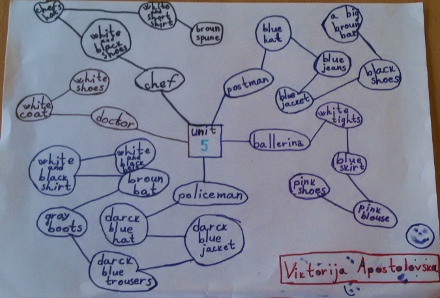 chef's
hat
white
and short
shirt
broun
spune
white
and
black
shoes
chef
blue
hat
a big
broun
bat
blue
jeans
black
shoes
blue
jacket
postman
white
shoes
white
coat
doctor
unit
5
ballerina
white
tights
blue
skirt
pink
shoes
pink
blouse
policeman
white
and
black
shirt
white
and
black
hat
broun
bat
gray
boots
darck
blue
hat
darck
blue
jacket
darck
blue
trousers
Viktorija Apostolovska